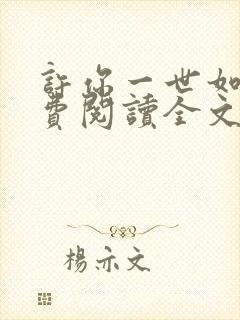 許你一世如
費閱讀全文
楊亦文